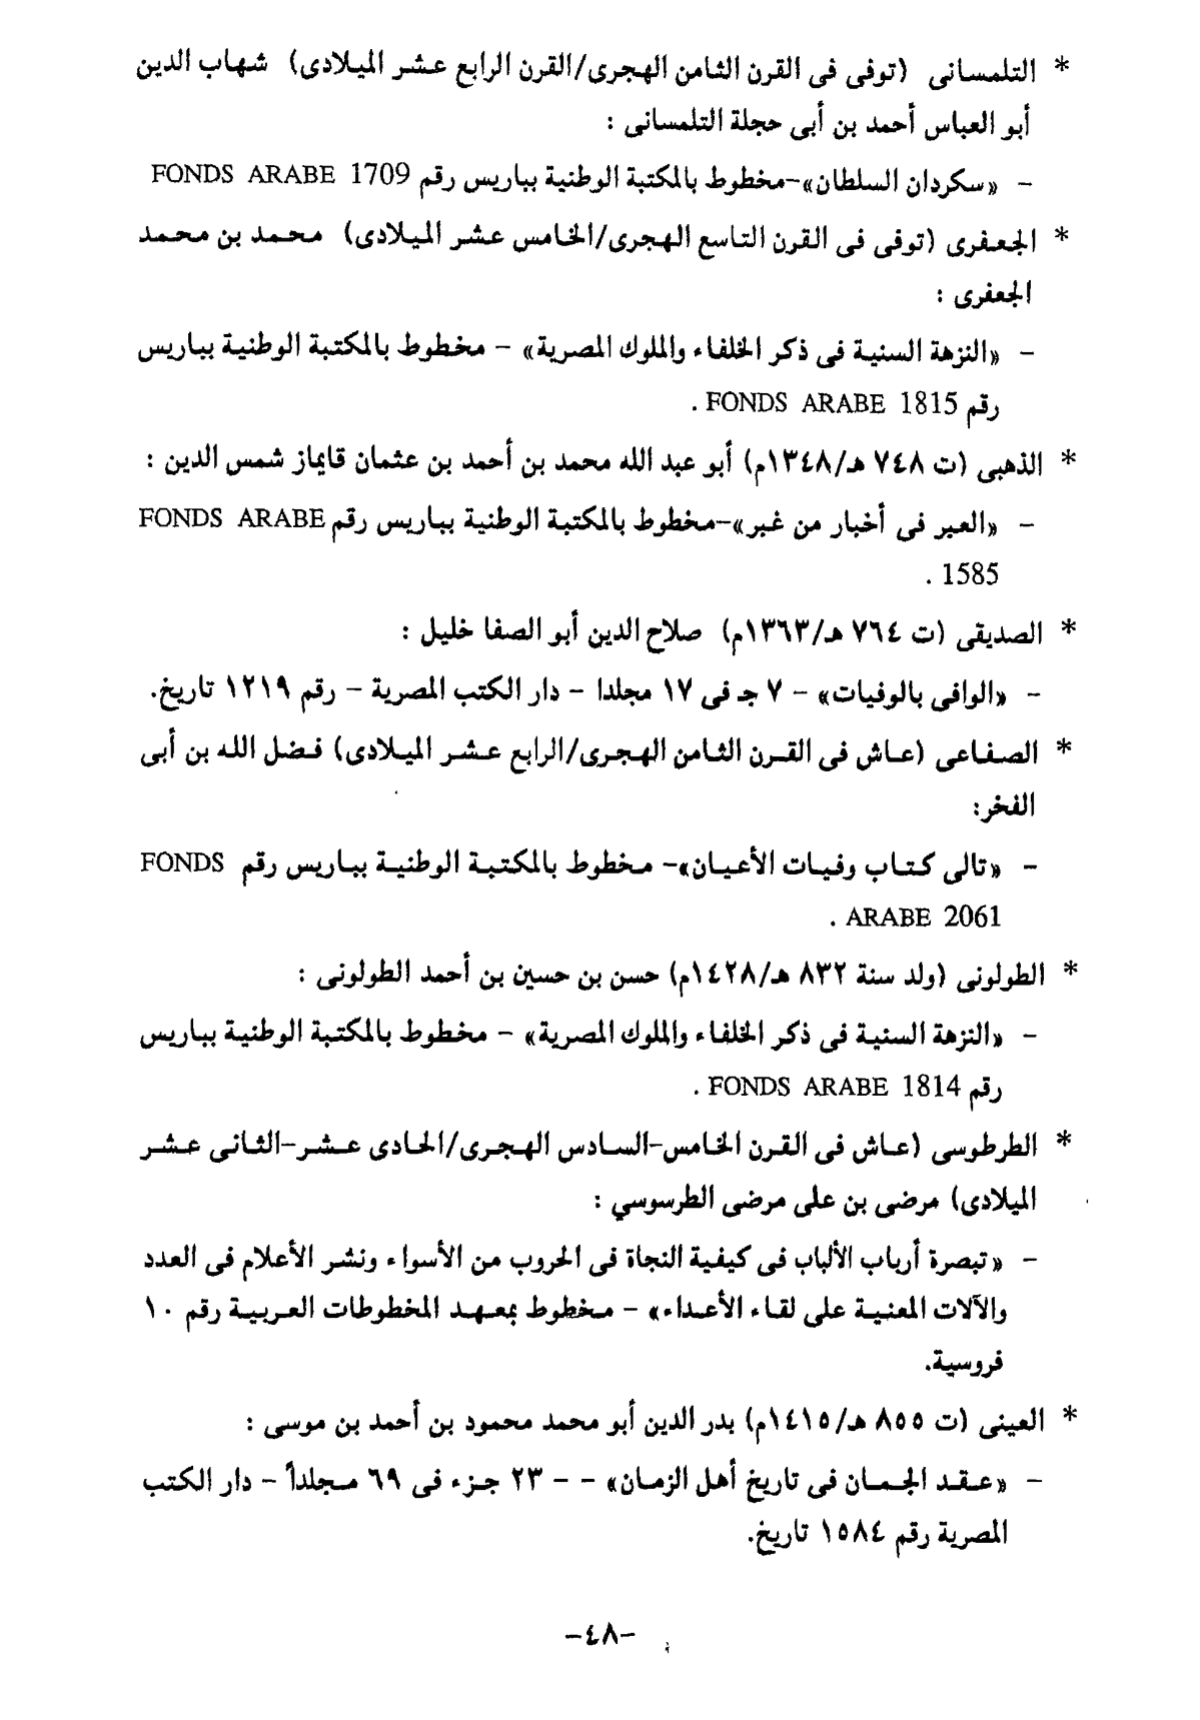 * التلمسانى (توفى فى القرن الثامن الهجرى/القرن الرابع عشر الميلادى) شهاب الدين
أبو العباس أحمد بن أبى حجلة التلمسانى :
– «سكردان السلطان»–مخطوط بالمكتبة الوطنية بباريس رقم FONDS ARABE 1709
* الجعفرى (توفى فى القرن التاسع الهجرى/الخامس عشر الميلادى) محمد بن محمد
الجعفرى :
– «النزهة السنية فى ذكر الخلفاء والملوك المصرية» – مخطوط بالمكتبة الوطنية بباريس
رقم FONDS ARABE 1815 .
* الذهبى (ت ٧٤٨ هـ/١٣٤٨م) أبو عبد الله محمد بن أحمد بن عثمان قايماز شمس الدين :
– «العبر فى أخبار من غبر»–مخطوط بالمكتبة الوطنية بباريس رقم FONDS ARABE
1585 .
* الصديقى (ت ٧٦٤ هـ/١٣٦٣م) صلاح الدين أبو الصفا خليل :
– «الوافى بالوفيات» – ٧ جـ فى ١٧ مجلدا – دار الكتب المصرية – رقم ١٢١٩ تاريخ.
* الصفاعى (عاش فى القرن الثامن الهجرى/الرابع عشر الميلادى) فضل الله بن أبى
الفخر:
– «تالى كتاب وفيات الأعيان»– مخطوط بالمكتبة الوطنية بباريس رقم FONDS
ARABE 2061 .
* الطولونى (ولد سنة ٨٣٢ هـ/١٤٢٨م) حسن بن حسين بن أحمد الطولونى :
– «النزهة السنية فى ذكر الخلفاء والملوك المصرية» – مخطوط بالمكتبة الوطنية بباريس
رقم FONDS ARABE 1814 .
* الطرطوسى (عاش فى القرن الخامس–السادس الهجرى/الحادى عشر–الثانى عشر
الميلادى) مرضى بن على مرضى الطرسوسي :
– «تبصرة أرباب الألباب فى كيفية النجاة فى الحروب من الأسواء ونشر الأعلام فى العدد
والآلات المعنية على لقاء الأعداء» – مخطوط بمعهد المخطوطات العربية رقم ١٠
فروسية.
* العينى (ت ٨٥٥ هـ/١٤١٥م) بدر الدين أبو محمد محمود بن أحمد بن موسى :
– «عقد الجمان فى تاريخ أهل الزمان» – – ٢٣ جزء فى ٦٩ مجلداً – دار الكتب
المصرية رقم ١٥٨٤ تاريخ.
–٤٨–